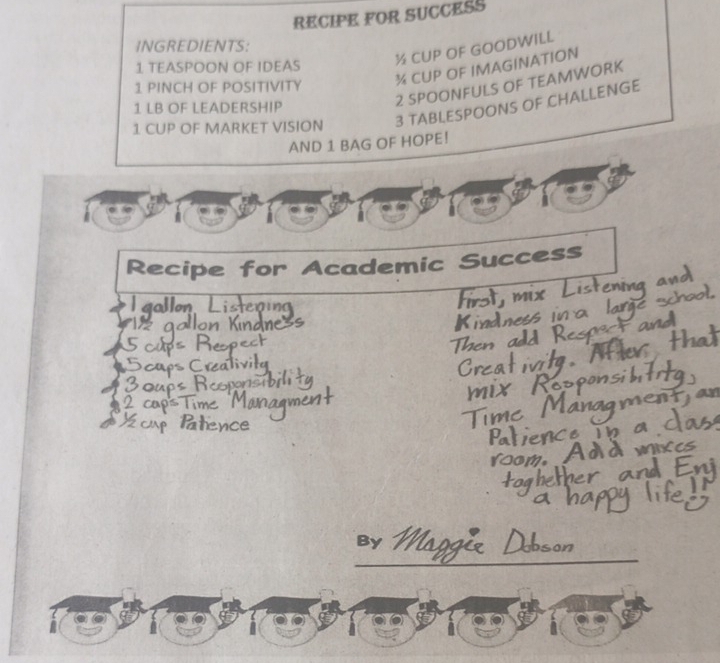 RECIPE FOR SUCCESS
INGREDIENTS:
1 TEASPOON OF IDEAS
1 PINCH OF POSITIVITY
1 LB OF LEADERSHIP
1 CUP OF MARKET VISION
½ CUP OF GOODWILL
¾ CUP OF IMAGINATION
2 SPOONFULS OF TEAMWORK
3 TABLESPOONS OF CHALLENGE
AND 1 BAG OF HOPE!
Recipe for Academic Success
1 gallon Listening
1½ gallon Kindness
5 cups Respect
5 cups Creativity
3 cups Responsibility
2 cups Time Managment
½ cup Patience
First, mix Listening and
Kindness in a large school.
Then add Respect and
Creativity. After, that
mix Responsibility,
Time Managment, an
Patience in a class
room. Add mixes
toghether and Enj
a happy life!!
By Maggie Dobson